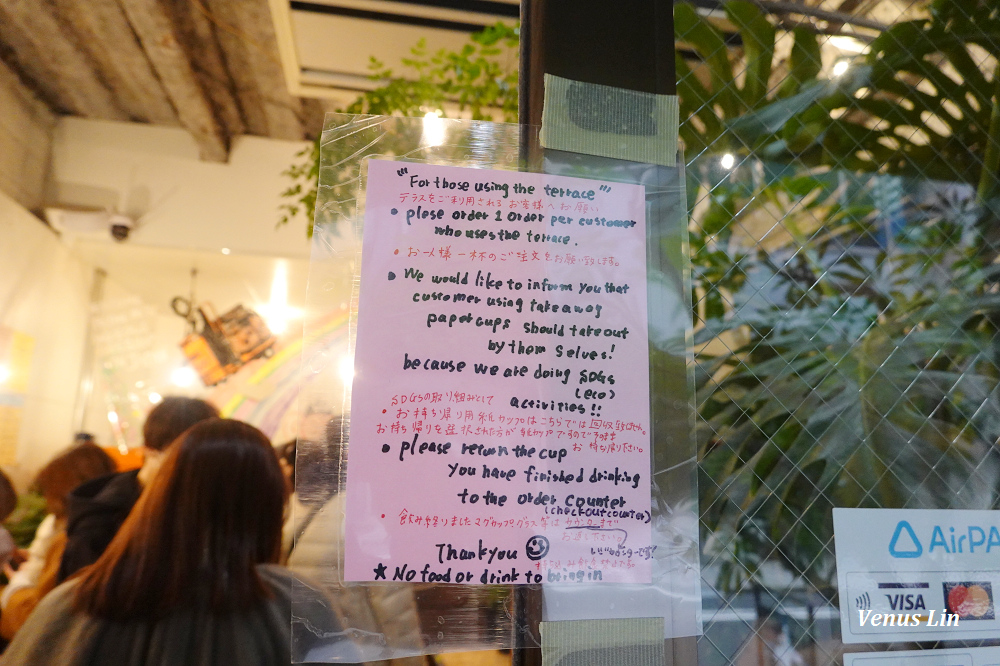 "For those using the terrace"
テラスをご利用されるお客様へお願い
• plese order 1 order per customer
who uses the terrace.
• お一人様一杯のご注文をお願い致します。
• We would like to inform you that
customer using takeaway
papercups should takeout
by them selves!
because we are doing SDGs
(eco)
activities!!
SDGsの取り組みとして
• お持ち帰り用紙カップはこちらでは回収致しません。
お持ち帰りを選択された方が紙カップですのでそのまま
お持ち帰り下さい。
• please return the cup
you have finished drinking
to the order counter
(checkout counter)
• 飲み終りましたマグカップ・グラス等はカウンターまで
お返し下さい。
Thankyou
★ No food or drink to bring in
AirPA
VISA
mastercard
Venus Lin